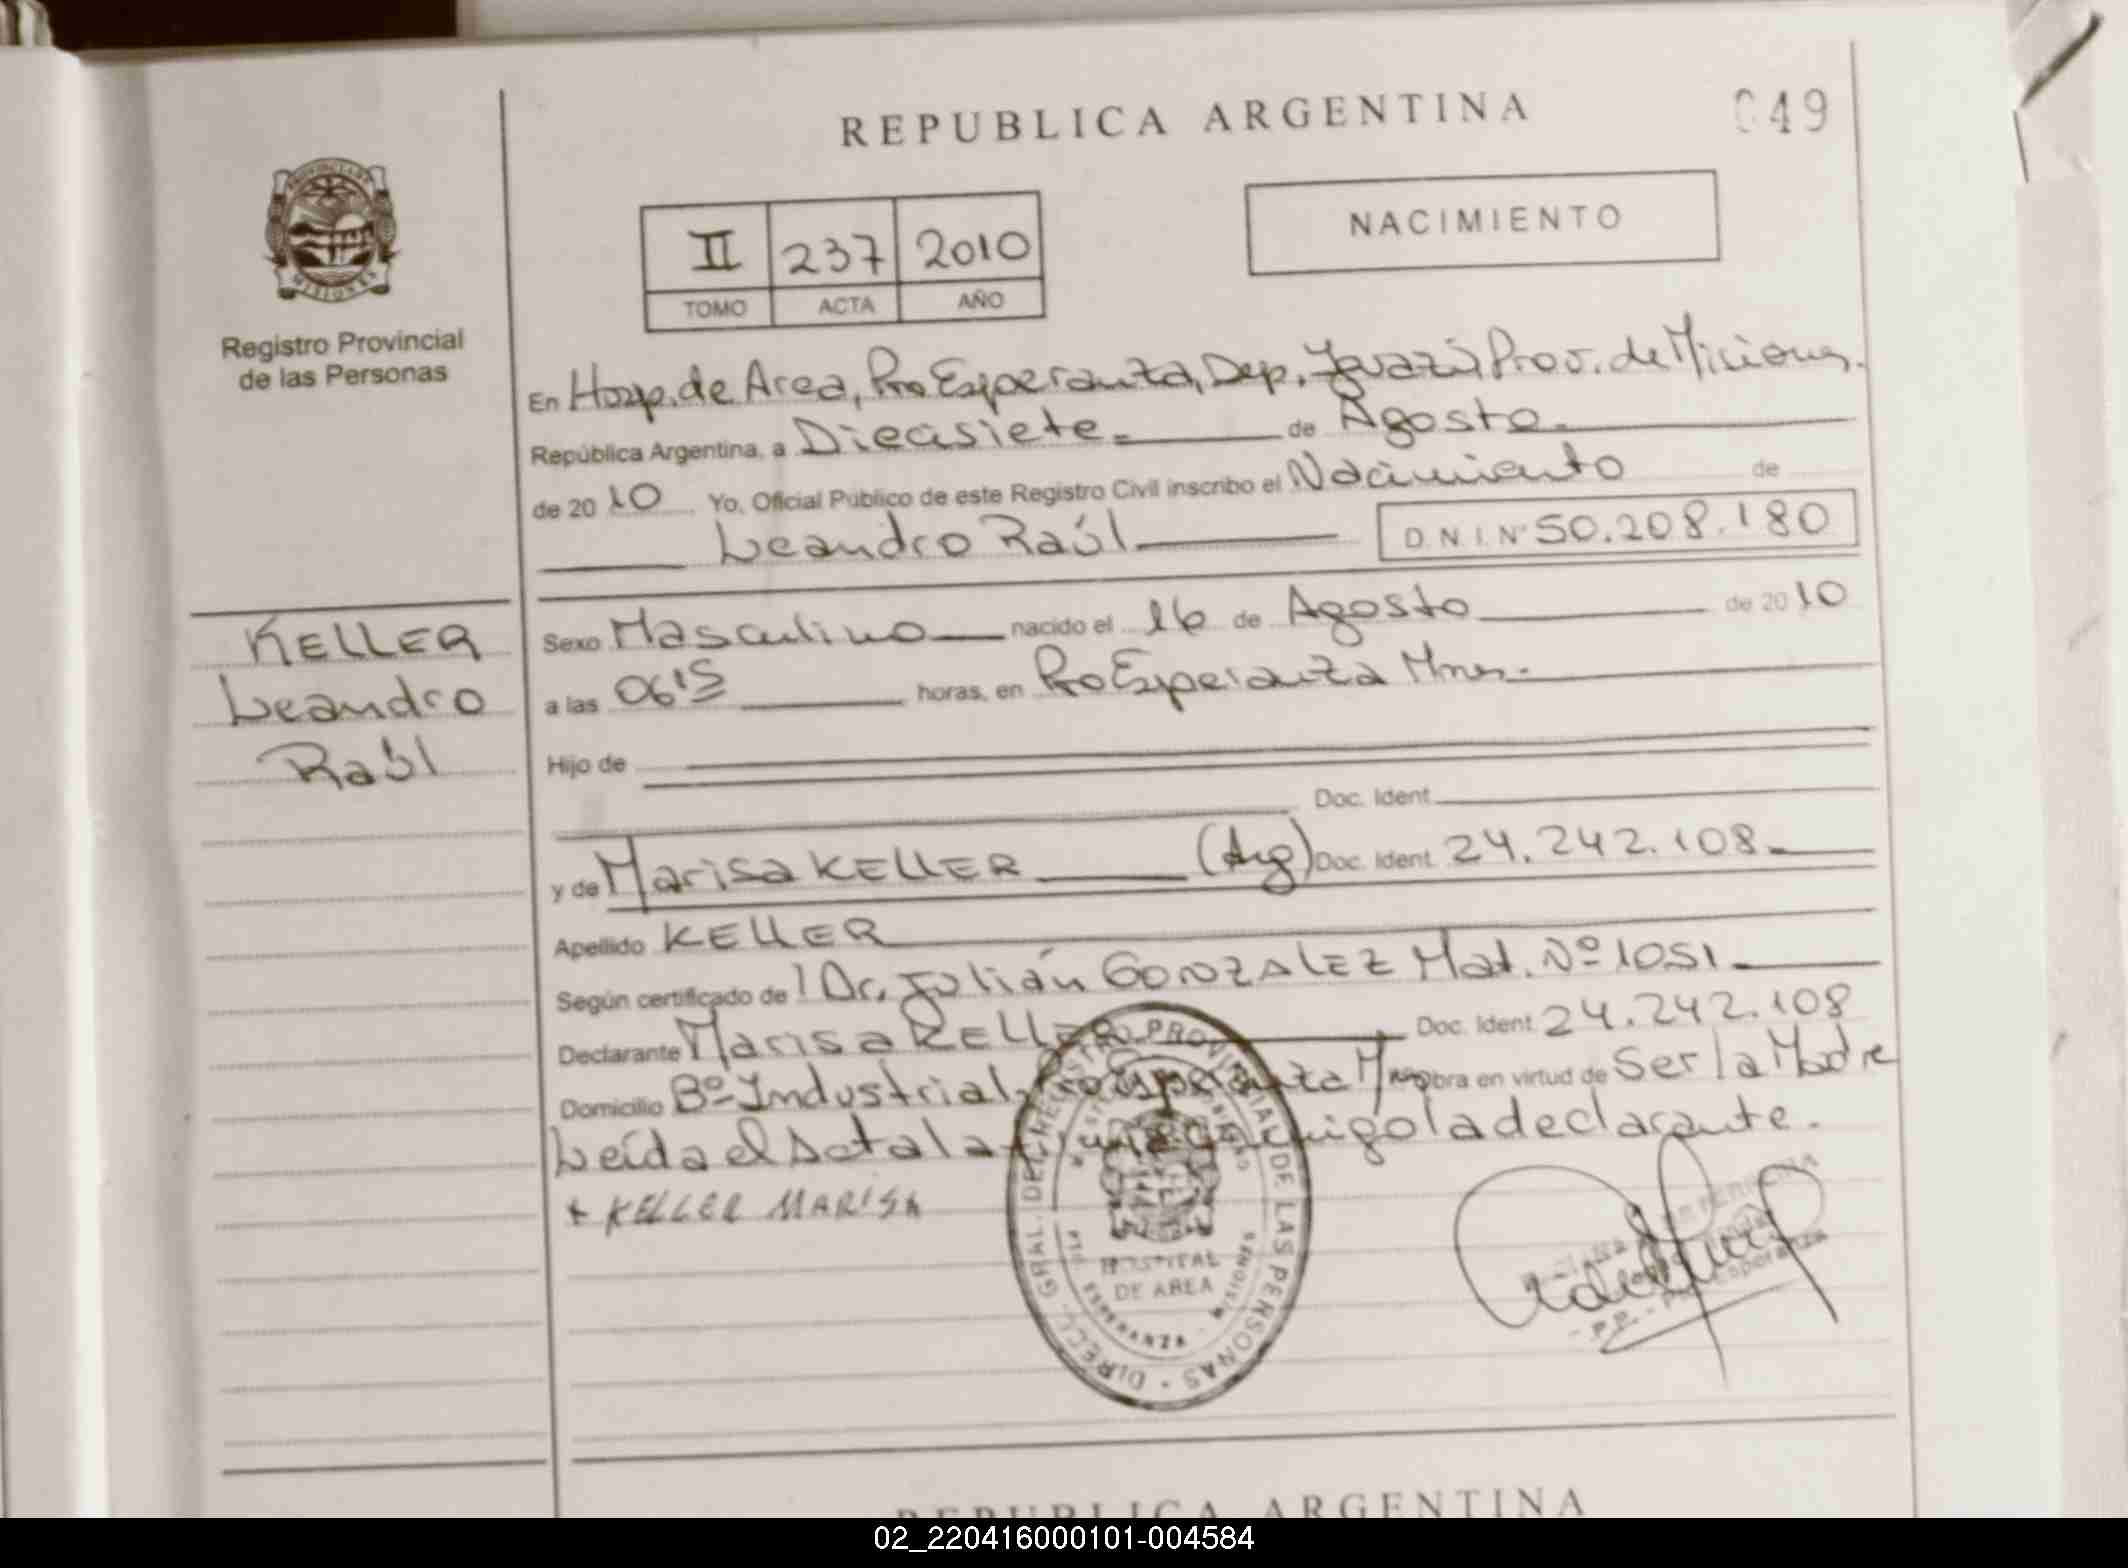 REPUBLICA ARGENTINA
049
II 237 2010
TOMO ACTA AÑO
NACIMIENTO
MISIONES
Registro Provincial
de las Personas
En Hosp. de Area, Pto Esperanza, Dep. Iguazú Prov. de Misiones.
República Argentina, a Diecisiete de Agosto.
de 2010 Yo, Oficial Público de este Registro Civil inscribo el Nacimiento de
Leandro Raúl D.N.I. Nº 50.208.180
KELLER
Leandro
Raúl
Sexo Masculino nacido el 16 de Agosto de 2010
a las 06'15 horas, en Pto Esperanza Mnes.
Hijo de
Doc. Ident.
y de Marisa KELLER (Arg) Doc. Ident. 24.242.108
Apellido KELLER
Según certificado de Dr. Julián GONZALEZ Mat. Nº 1051
Declarante Marisa KELLER Doc. Ident. 24.242.108
Domicilio Bº Industrial, Pto Esperanza Mnes obra en virtud de Ser la Madre
Leída el Acta la firma conmigo la declarante.
+ KELLER MARISA
DIRECC. GRAL. DEL REGISTRO PROVINCIAL DE LAS PERSONAS
HOSPITAL
DE AREA
PTO. ESPERANZA - MISIONES
REPUBLICA ARGENTINA
02_220416000101-004584